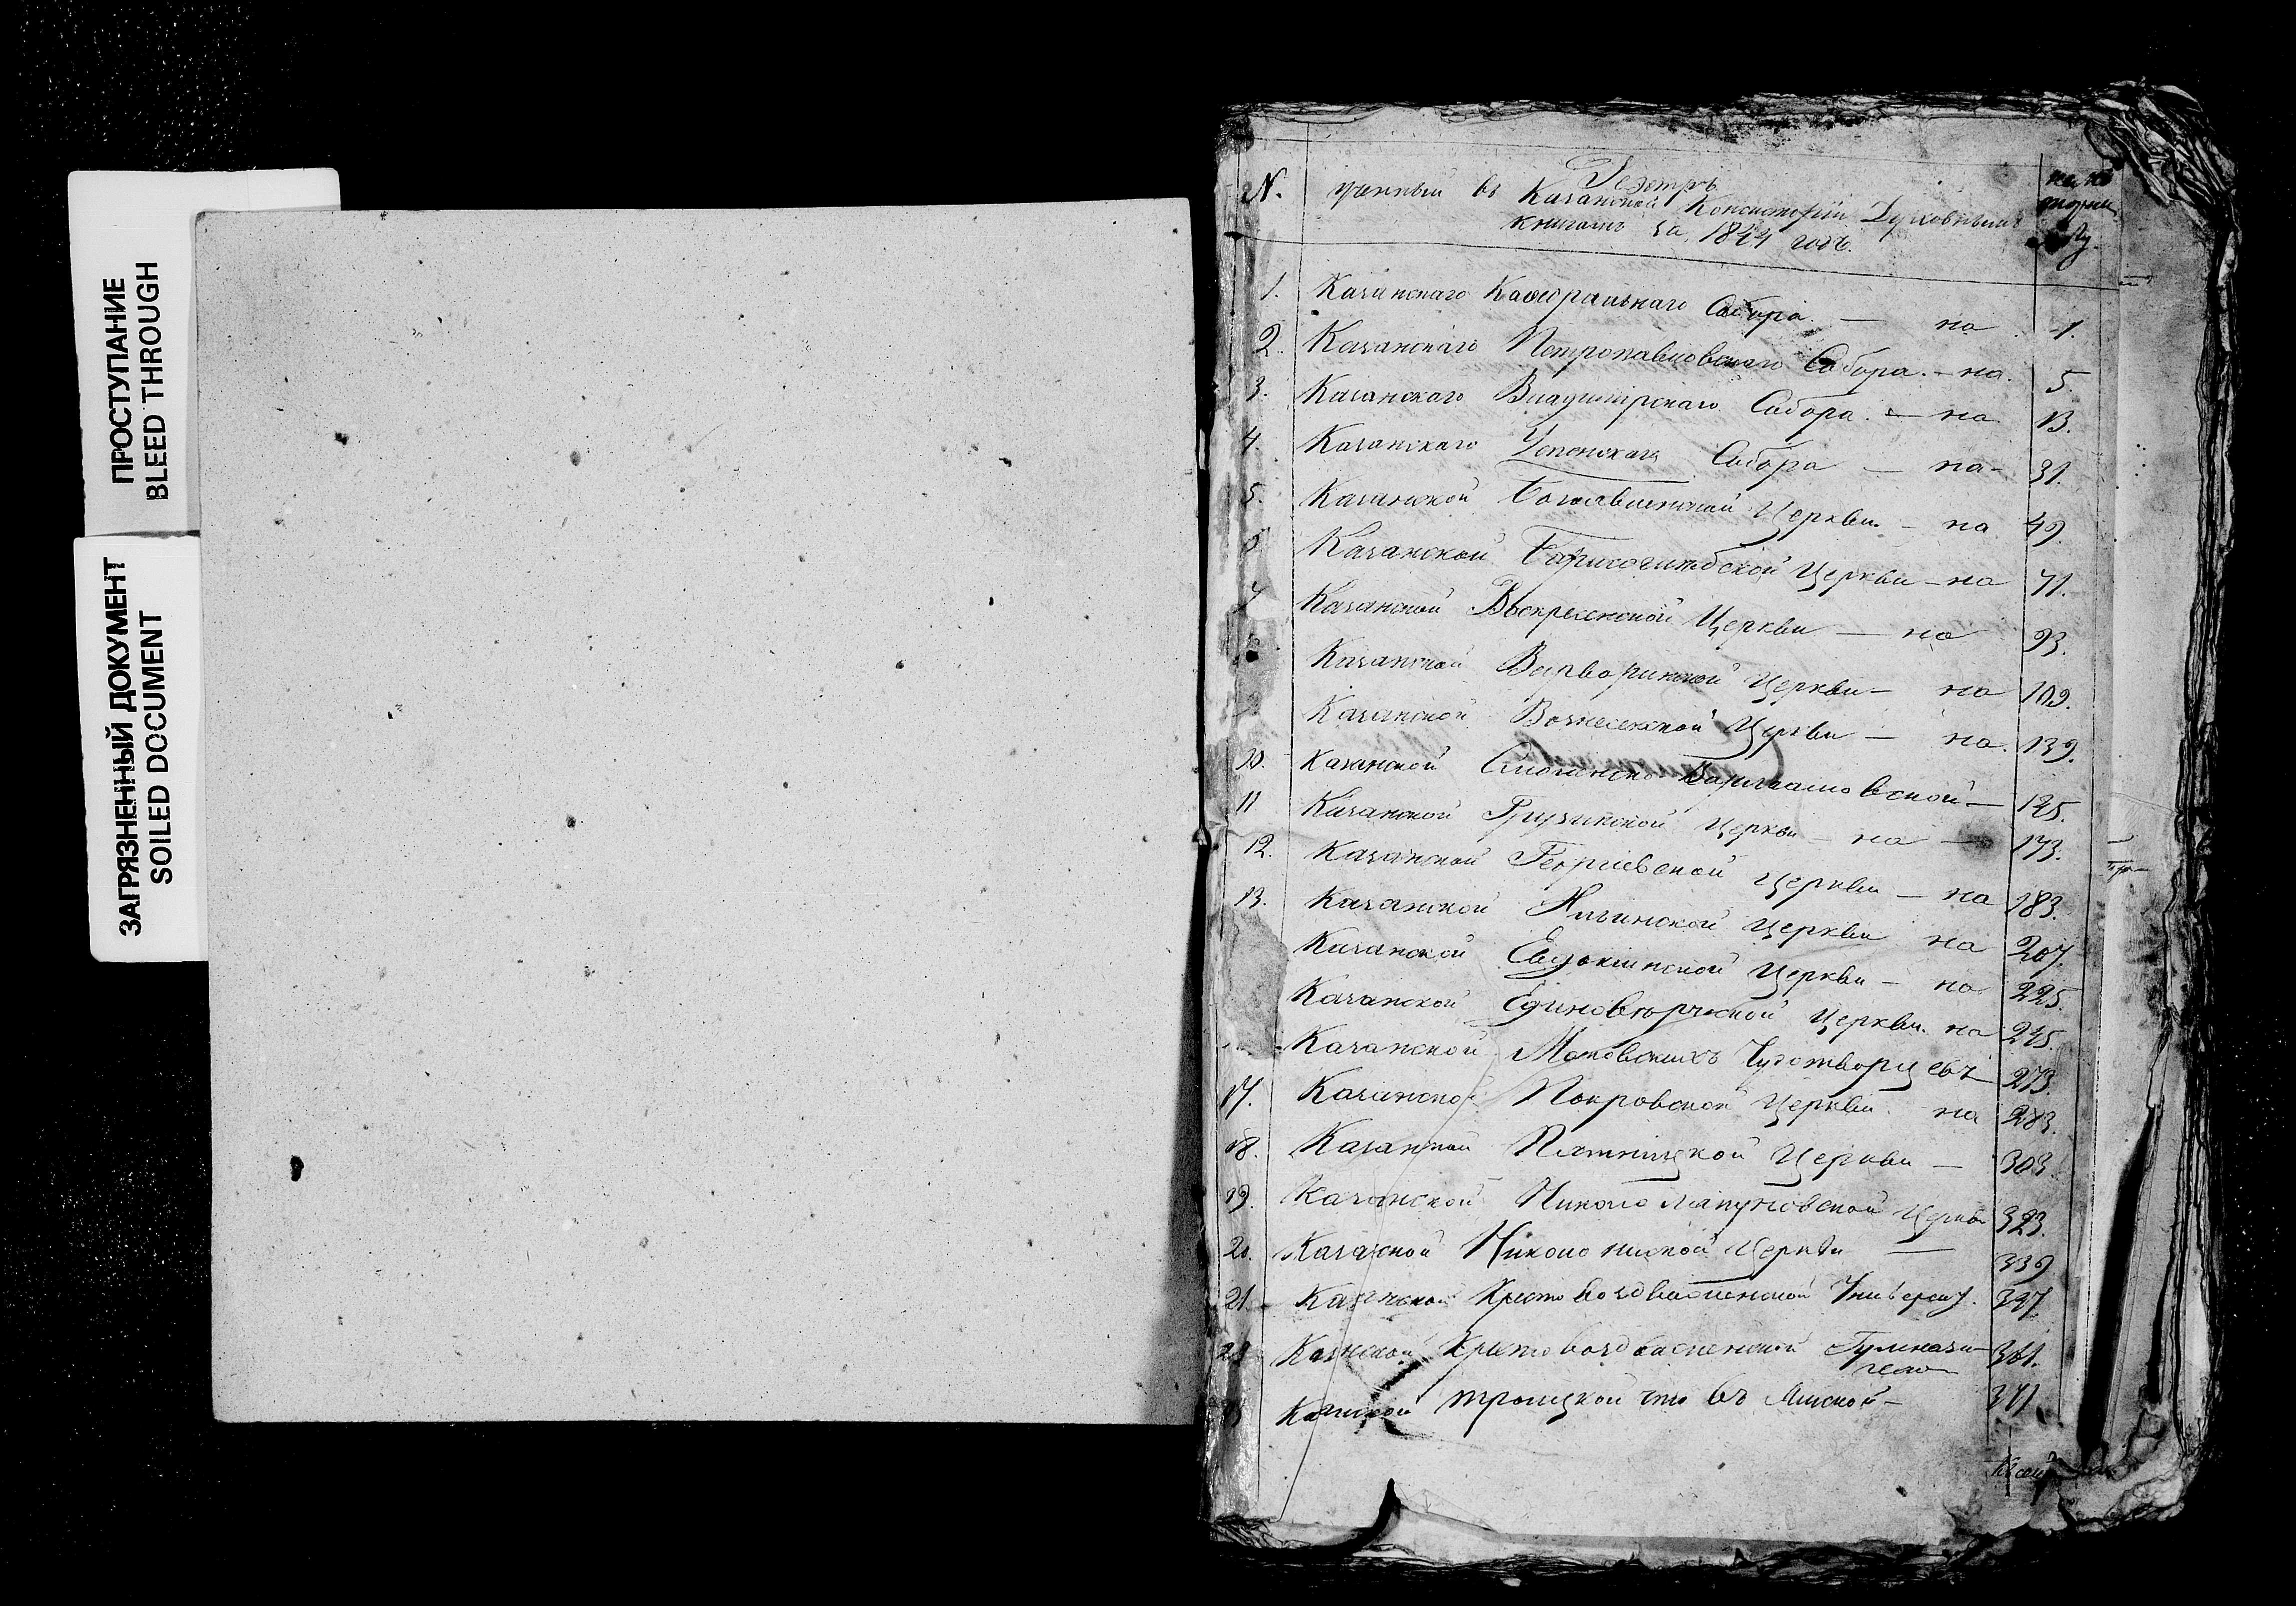 ПРОСТУПАНИЕ
BLEED THROUGH
ЗАГРЯЗНЕННЫЙ ДОКУМЕНТ
SOILED DOCUMENT
N.
Реэстръ
учинный въ Казанской Консисторіи Духовнымъ
книгамъ за 1844 годъ.
1. Казанскаго Кафедральнаго Собора — на 1.
2. Казанскаго Петропавловскаго Собора. — на. 5.
3. Казанскаго Владимірскаго Собора. — на 13.
4. Казанскаго Успенскаго Собора — на - 31.
5. Казанской Богоявленской Церкви. — на 49.
6 Казанской Борисоглѣбской Церкви — на 71.
7 Казанской Воскресенской Церкви — на 93.
Казанской Варваринской Церкви — на 109.
Казанской Вознесенской Церкви — на. 139.
10. Казанской Смоленско — 145.
11 Казанской Грузинской Церкви — на — 173.
12. Казанской Георгіевской Церкви — на 183.
13. Казанской Ильинской Церкви на 207.
Казанской Евдокіинской Церкви — на 225.
Казанской Единовѣрческой Церкви. на 245.
Казанской Московскихъ Чудотворцевъ 273.
17. Казанской Покровской Церкви. на 283.
18. Казанской Пятницкой Церкви — 303.
19. Казанской Николо Ляпуновской Церкви 323.
20. Казанской Николо Церкви — 339
21. Казанской Кресто воздвиженской Университ. 347.
Казанской Кресто воздвиженской Гимнази 361.
Казанской Троицкой что въ Ямской — 371